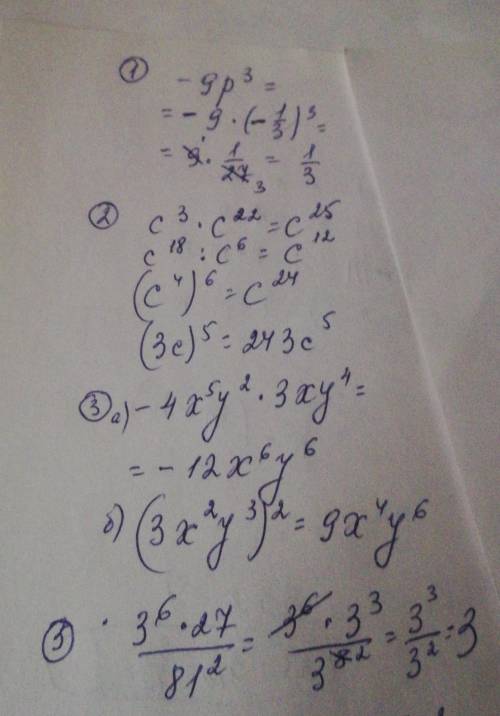 ① -9p³ =
= -9 · (-1/3)³ =
= 9 · 1/27 3 = 1/3
② c³ · c²² = c²⁵
c¹⁸ : c⁶ = c¹²
(c⁴)⁶ = c²⁴
(3c)⁵ = 243c⁵
③ а) -4x⁵y² · 3xy⁴ =
= -12x⁶y⁶
б) (3x²y³)² = 9x⁴y⁶
⑤ 3⁶ · 27 / 81² = 3⁶ · 3³ / 3⁸ ² = 3³ / 3² = 3